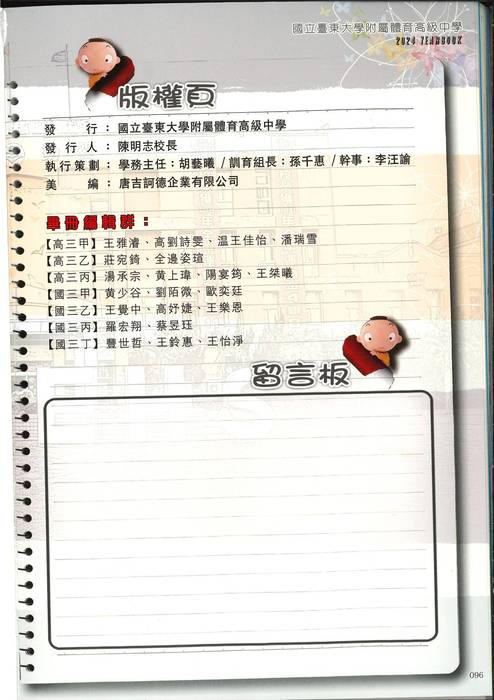 國立臺東大學附屬體育高級中學
2024 YEARBOOK
版權頁
發 行：國立臺東大學附屬體育高級中學
發 行 人：陳明志校長
執行策劃：學務主任：胡藝曦 / 訓育組長：孫千惠 / 幹事：李汪諭
美 編：唐吉訶德企業有限公司
畢冊編輯群：
【高三甲】王雅濬、高劉詩雯、溫王佳怡、潘瑞雪
【高三乙】莊宛錡、全邊姿瑄
【高三丙】湯承宗、黄上瑋、陽宴筠、王桀曦
【國三甲】黄少谷、劉陌微、歐奕廷
【國三乙】王覺中、高妤婕、王樂恩
【國三丙】羅宏翔、蔡昱玨
【國三丁】豐世哲、王鈴惠、王怡淨
留言板
096